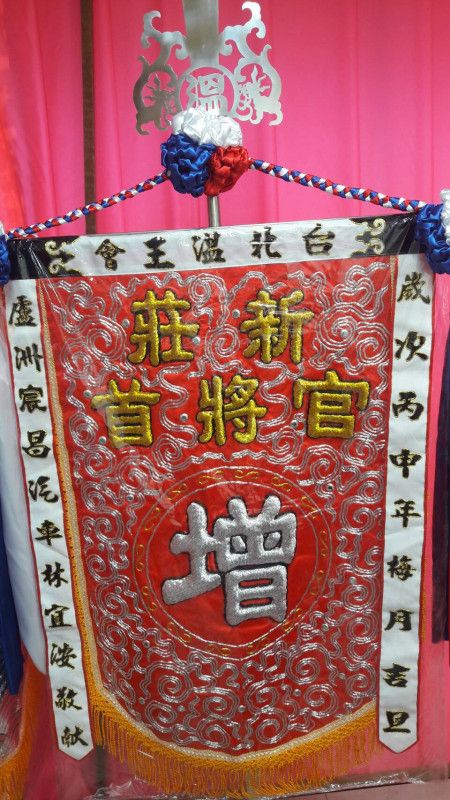 溫
台北溫王會
歲次丙申年梅月吉旦
新莊
官將首
增
盧洲宸昌汽車林宜洝敬献